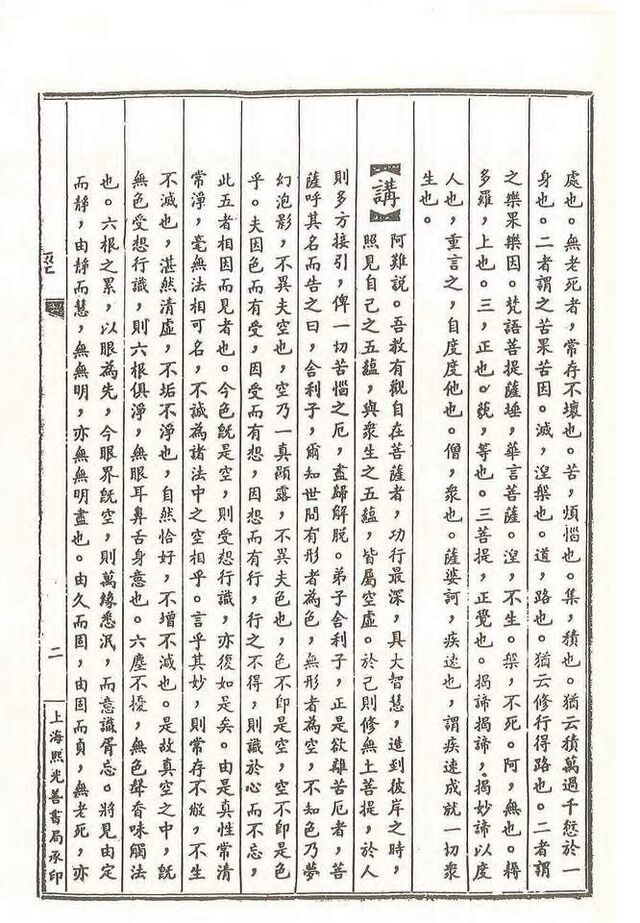 處也。無老死者，常存不壞也。苦，煩惱也。集，積也。猶云積萬過千愆於一
身也。二者謂之苦果苦因。滅，涅槃也。道，路也。猶云修行得路也。二者謂
之樂果樂因。梵語菩提薩埵，華言菩薩。涅，不生。槃，不死。阿，無也。耨
多羅，上也。三，正也。藐，等也。三菩提，正覺也。揭諦揭諦，揭妙諦以度
人也，重言之，自度度他也。僧，衆也。薩婆訶，疾速也，謂疾速成就一切衆
生也。
【講】阿難說。吾教有觀自在菩薩者，功行最深，具大智慧，造到彼岸之時，
照見自己之五蘊，與衆生之五蘊，皆屬空虛。於己則修無上菩提，於人
則多方接引，俾一切苦惱之厄，盡歸解脫。弟子舍利子，正是欲離苦厄者，菩
薩呼其名而告之曰，舍利子，爾知世間有形者為色，無形者為空，不知色乃夢
幻泡影，不異夫空也，空乃一真顕露，不異夫色也，色不即是空，空不即是色
乎。夫因色而有受，因受而有想，因想而有行，行之不得，則識於心而不忘，
此五者相因而見者也。今色旣是空，則受想行識，亦復如是矣。由是真性常清
常淨，毫無法相可名，不誠為諸法中之空相乎。言乎其妙，則常存不敝，不生
不滅也，湛然清虛，不垢不淨也，自然恰好，不增不減也。是故真空之中，旣
無色受想行識，則六根俱淨，無眼耳鼻舌身意也。六塵不擾，無色聲香味觸法
也。六根之累，以眼為先，今眼界旣空，則萬緣悉泯，而意識胥忘。將見由定
而靜，由靜而慧，無無明，亦無無明盡也。由久而固，由固而貞，無老死，亦
二
上海照光善書局承印